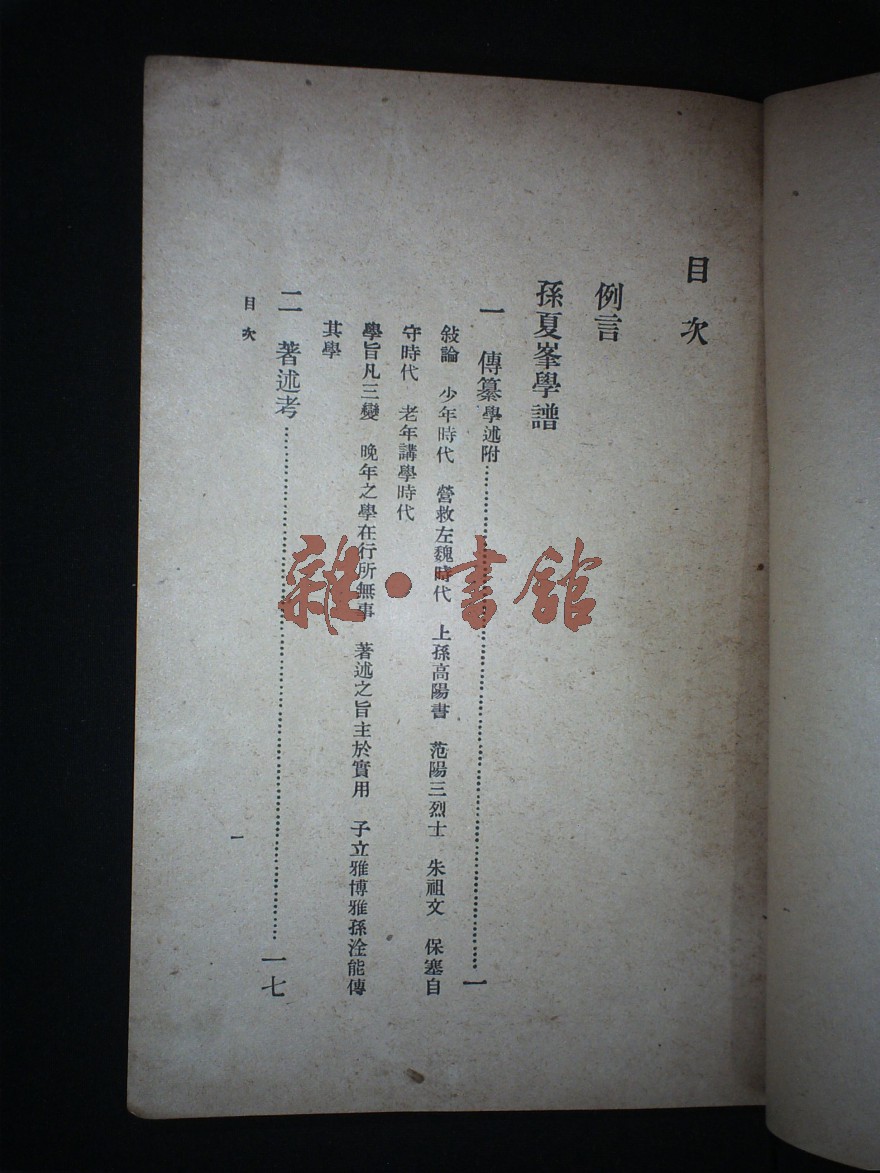 目次
例言
孫夏峯學譜
一 傳纂學述附……一
敍論 少年時代 營救左魏時代 上孫高陽書 范陽三烈士 朱祖文 保塞自
守時代 老年講學時代
學旨凡三變 晚年之學在行所無事 著述之旨主於實用 子立雅博雅孫淦能傳
其學
二 著述考……一七
目次
一
雜·書館